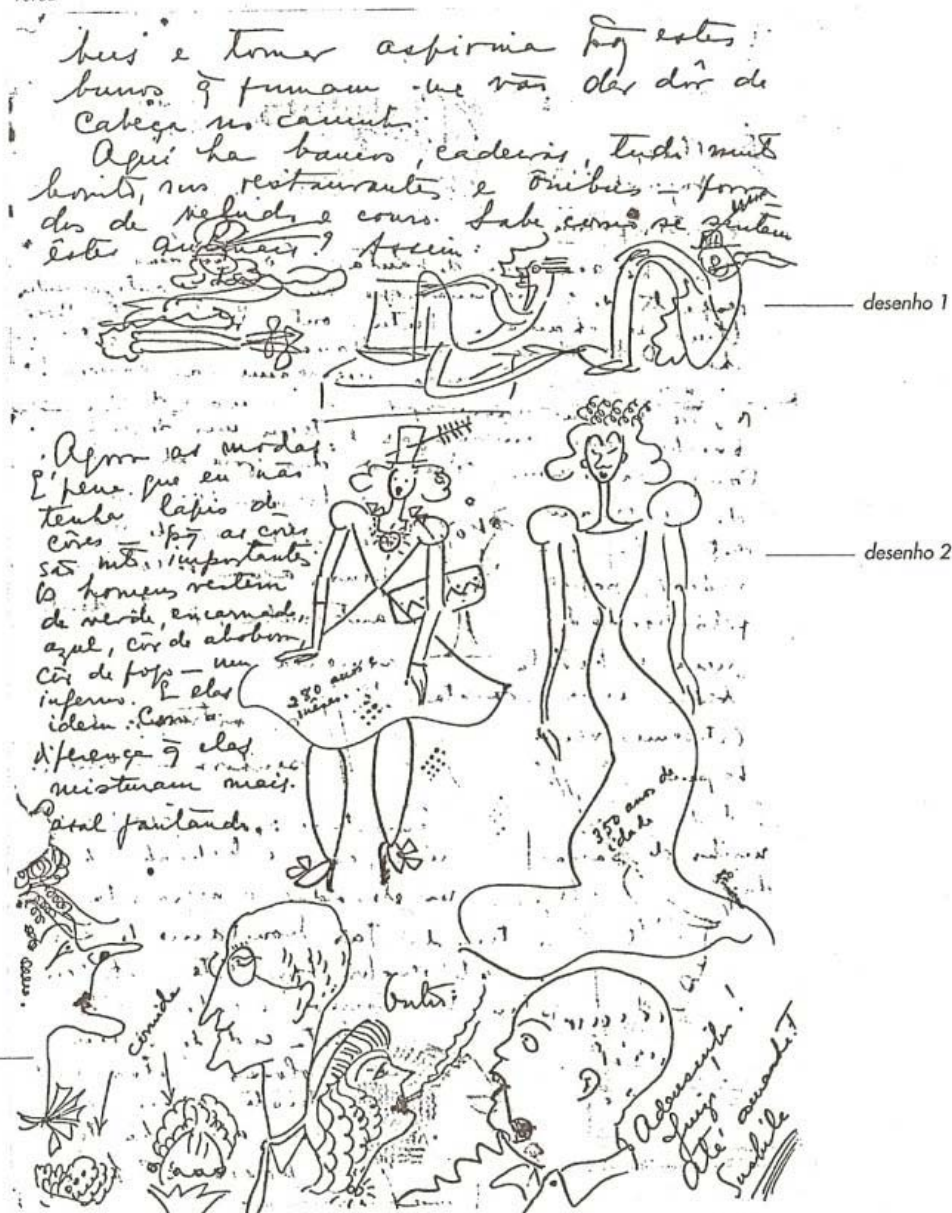 bus e tomar aspirina pq estes
burros q̃ fumam me vão dar dôr de
cabeça no caminho.
Aqui ha bancos, cadeiras, tudo muito
bonito, nos restaurantes e ônibus — forra
dos de veludo e couro. Sabe como se sentam
êstes animais? Assim:
desenho 1
Agora as modas.
É pena que eu não
tenha lapis de
côres — pq as côres
são mto. importantes
Os homens vestem
de verde, encarnado,
azul, côr de abobora,
côr de fogo — um
inferno. E elas
idem. Com a
diferença q̃ elas
misturam mais.
desenho 2
280 anos e
mêses
350 anos de
idade
comida
Outro:
Adeusinho!
Luiz
Até